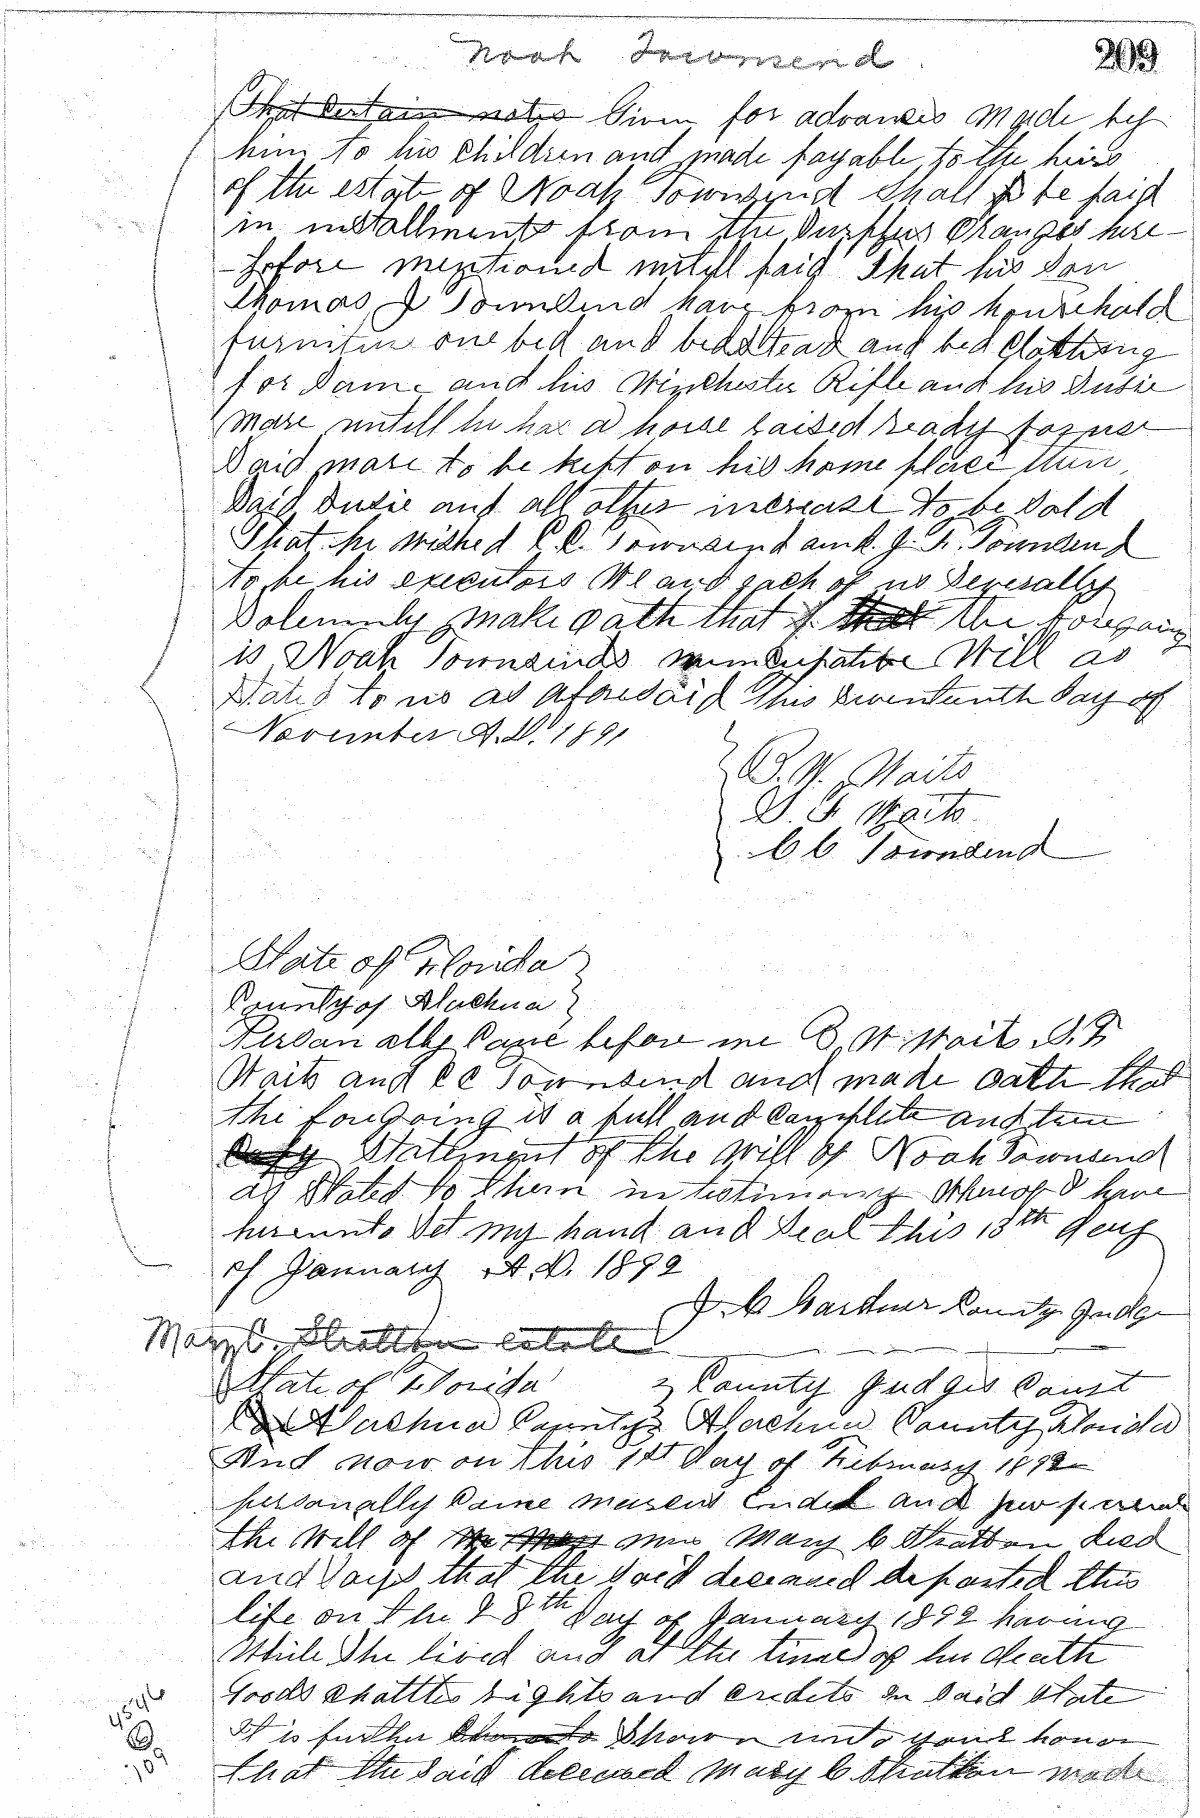 Noah Townsend. 209
That certain notes Given for advances made by
him to his Children and made payable to the heirs
of the estate of Noah Townsend shall be paid
in installments from the Surplus Oranges here-
-before mentioned untill paid That his son
Thomas J Townsend have from his household
furniture one bed and beddstead and bed Clothing
for Same and his Winchester Rifle and his Susie
mare untill he has a horse raised ready for use
Said mare to be kept on his home place then
Said Susie and all other increase to be Sold
That he wished C.C. Townsend and J. F. Townsend
to be his executors We and each of us Severally
Solemnly make oath that the foregoing
is Noah Townsends nuncupative Will as
Stated to us as aforesaid This Seventeenth day of
November A.D. 1891
B. W. Waits
S. F Waits
C C Townsend
State of Florida
County of Alachua
Personally Came before me B W Waits, S. F
Waits and C C Townsend and made oath that
the foregoing is a full and Complete and true
Copy Statement of the Will of Noah Townsend
as Stated to them in testimony whereof I have
hereunto Set my hand and Seal this 13th day
of January A.D. 1892
J. C Gardner County Judge
Mary C. Stratton estate
State of Florida County Judges Court
Alachua County Alachua County Florida
And now on this 1st day of February 1892
personally Came and
the Will of Mrs Mary C Stratton decd
and Says that the Said deceased departed this
life on the 28th day of January 1892 having
While She lived and at the time of her death
Goods Chattles rights and credits in Said State
It is further Shown unto your honor
that the Said deceased Mary C Stratton made
4546
109